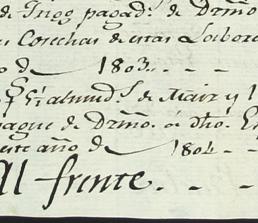 de Trigo pagad.s de Dzmo
es Cosechas de estas Labore
o de 1803.
almud.s de Maiz y 1
pague de Dzmo. á dho. E
este año de 1804
Al frente.